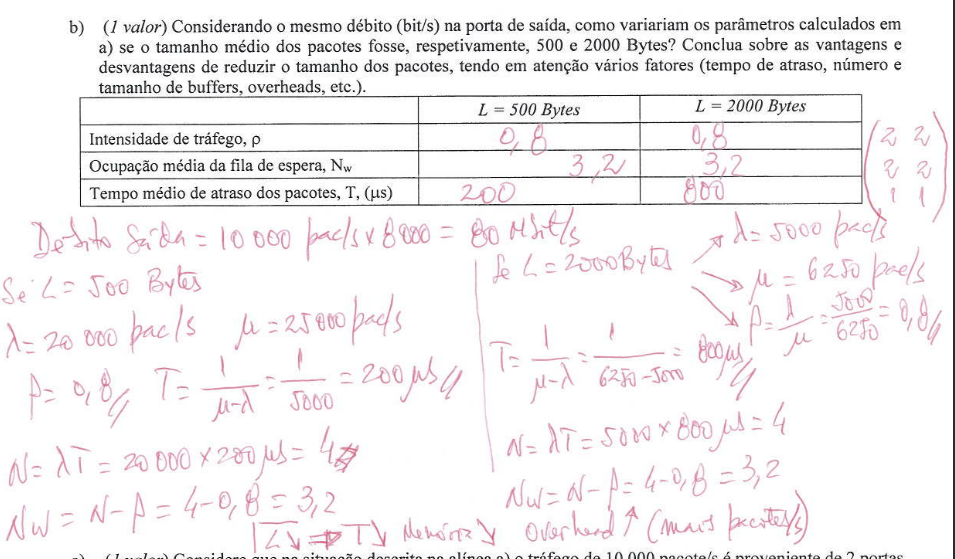 b) (1 valor) Considerando o mesmo débito (bit/s) na porta de saída, como variariam os parâmetros calculados em
a) se o tamanho médio dos pacotes fosse, respetivamente, 500 e 2000 Bytes? Conclua sobre as vantagens e
desvantagens de reduzir o tamanho dos pacotes, tendo em atenção vários fatores (tempo de atraso, número e
tamanho de buffers, overheads, etc.).
L = 500 Bytes L = 2000 Bytes
Intensidade de tráfego, ρ 0,8 0,8
Ocupação média da fila de espera, Nw 3,2 3,2
Tempo médio de atraso dos pacotes, T, (μs) 200 800
2 2
2 2
1 1
Débito Saída = 10 000 pac/s x 8000 = 80 Mbit/s
Se L = 500 Bytes
λ = 20 000 pac/s μ = 25 000 pac/s
ρ = 0,8// T = 1/(μ-λ) = 1/5000 = 200 μs //
N = λT = 20 000 x 200 μs = 4
Nw = N - ρ = 4 - 0,8 = 3,2
Se L = 2000 Bytes
λ = 5000 pac/s
μ = 6250 pac/s
ρ = λ/μ = 5000/6250 = 0,8//
T = 1/(μ-λ) = 1/(6250-5000) = 800 μs //
N = λT = 5000 x 800 μs = 4
Nw = N - ρ = 4 - 0,8 = 3,2
L↓ ⇒ T↓ Memória ↓ Overhead ↑ (mais pacotes/s)